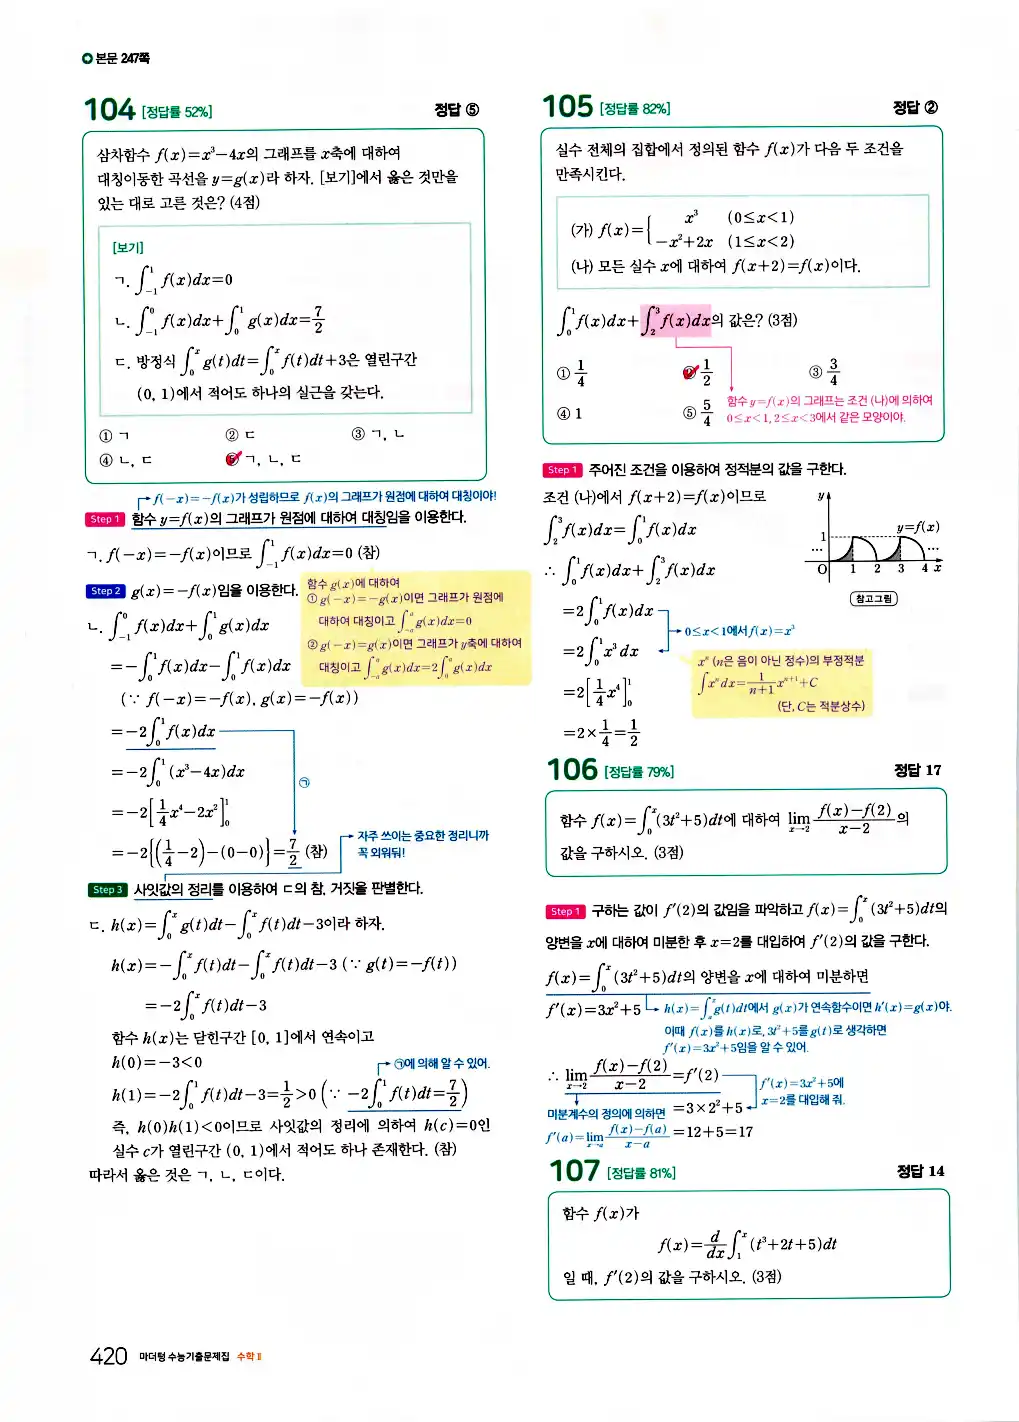 본문 247쪽
104 [정답률 52%] 정답 ⑤
삼차함수 f(x)=x³-4x의 그래프를 x축에 대하여
대칭이동한 곡선을 y=g(x)라 하자. [보기]에서 옳은 것만을
있는 대로 고른 것은? (4점)
[보기]
ㄱ. ∫₋₁¹ f(x)dx=0
ㄴ. ∫₋₁⁰ f(x)dx+∫₀¹ g(x)dx=7/2
ㄷ. 방정식 ∫₀ˣ g(t)dt=∫₀ˣ f(t)dt+3은 열린구간
(0, 1)에서 적어도 하나의 실근을 갖는다.
① ㄱ ② ㄷ ③ ㄱ, ㄴ
④ ㄴ, ㄷ ⑤ ㄱ, ㄴ, ㄷ
f(-x)=-f(x)가 성립하므로 f(x)의 그래프가 원점에 대하여 대칭이야!
Step 1 함수 y=f(x)의 그래프가 원점에 대하여 대칭임을 이용한다.
ㄱ. f(-x)=-f(x)이므로 ∫₋₁¹ f(x)dx=0 (참)
Step 2 g(x)=-f(x)임을 이용한다.
함수 g(x)에 대하여
① g(-x)=-g(x)이면 그래프가 원점에
대하여 대칭이고 ∫₋ₐᵃ g(x)dx=0
② g(-x)=g(x)이면 그래프가 y축에 대하여
대칭이고 ∫₋ₐᵃ g(x)dx=2∫₀ᵃ g(x)dx
ㄴ. ∫₋₁⁰ f(x)dx+∫₀¹ g(x)dx
=-∫₀¹ f(x)dx-∫₀¹ f(x)dx
(∵ f(-x)=-f(x), g(x)=-f(x))
=-2∫₀¹ f(x)dx
=-2∫₀¹ (x³-4x)dx
㉠
=-2[1/4x⁴-2x²]₀¹
=-2{(1/4-2)-(0-0)}=7/2 (참)
자주 쓰이는 중요한 정리니까
꼭 외워둬!
Step 3 사잇값의 정리를 이용하여 ㄷ의 참, 거짓을 판별한다.
ㄷ. h(x)=∫₀ˣ g(t)dt-∫₀ˣ f(t)dt-3이라 하자.
h(x)=-∫₀ˣ f(t)dt-∫₀ˣ f(t)dt-3 (∵ g(t)=-f(t))
=-2∫₀ˣ f(t)dt-3
함수 h(x)는 닫힌구간 [0, 1]에서 연속이고
h(0)=-3<0
㉠에 의해 알 수 있어.
h(1)=-2∫₀¹ f(t)dt-3=1/2>0 (∵ -2∫₀¹ f(t)dt=7/2)
즉, h(0)h(1)<0이므로 사잇값의 정리에 의하여 h(c)=0인
실수 c가 열린구간 (0, 1)에서 적어도 하나 존재한다. (참)
따라서 옳은 것은 ㄱ, ㄴ, ㄷ이다.
105 [정답률 82%] 정답 ②
실수 전체의 집합에서 정의된 함수 f(x)가 다음 두 조건을
만족시킨다.
(가) f(x)={ x³ (0≤x<1)
-x²+2x (1≤x<2)
(나) 모든 실수 x에 대하여 f(x+2)=f(x)이다.
∫₀¹ f(x)dx+∫₂³ f(x)dx의 값은? (3점)
① 1/4 ② 1/2 ③ 3/4
④ 1 ⑤ 5/4
함수 y=f(x)의 그래프는 조건 (나)에 의하여
0≤x<1, 2≤x<3에서 같은 모양이야.
Step 1 주어진 조건을 이용하여 정적분의 값을 구한다.
조건 (나)에서 f(x+2)=f(x)이므로
∫₂³ f(x)dx=∫₀¹ f(x)dx
∴ ∫₀¹ f(x)dx+∫₂³ f(x)dx
y
y=f(x)
1
… …
O 1 2 3 4 x
참고그림
=2∫₀¹ f(x)dx
0≤x<1에서 f(x)=x³
=2∫₀¹ x³dx
=2[1/4x⁴]₀¹
=2×1/4=1/2
xⁿ (n은 음이 아닌 정수)의 부정적분
∫xⁿdx=1/(n+1) xⁿ⁺¹+C
(단, C는 적분상수)
106 [정답률 79%] 정답 17
함수 f(x)=∫₀ˣ(3t²+5)dt에 대하여 lim x→2 (f(x)-f(2))/(x-2)의
값을 구하시오. (3점)
Step 1 구하는 값이 f′(2)의 값임을 파악하고 f(x)=∫₀ˣ(3t²+5)dt의
양변을 x에 대하여 미분한 후 x=2를 대입하여 f′(2)의 값을 구한다.
f(x)=∫₀ˣ(3t²+5)dt의 양변을 x에 대하여 미분하면
f′(x)=3x²+5
h(x)=∫₀ˣg(t)dt에서 g(x)가 연속함수이면 h′(x)=g(x)야.
이때 f(x)를 h(x)로, 3t²+5를 g(t)로 생각하면
f′(x)=3x²+5임을 알 수 있어.
∴ lim x→2 (f(x)-f(2))/(x-2)=f′(2)
f′(x)=3x²+5에
x=2를 대입해 줘.
=3×2²+5
=12+5=17
미분계수의 정의에 의하면
f′(a)=lim x→a (f(x)-f(a))/(x-a)
107 [정답률 81%] 정답 14
함수 f(x)가
f(x)=d/dx∫₁ˣ(t³+2t+5)dt
일 때, f′(2)의 값을 구하시오. (3점)
420 마더텅 수능기출문제집 수학 II